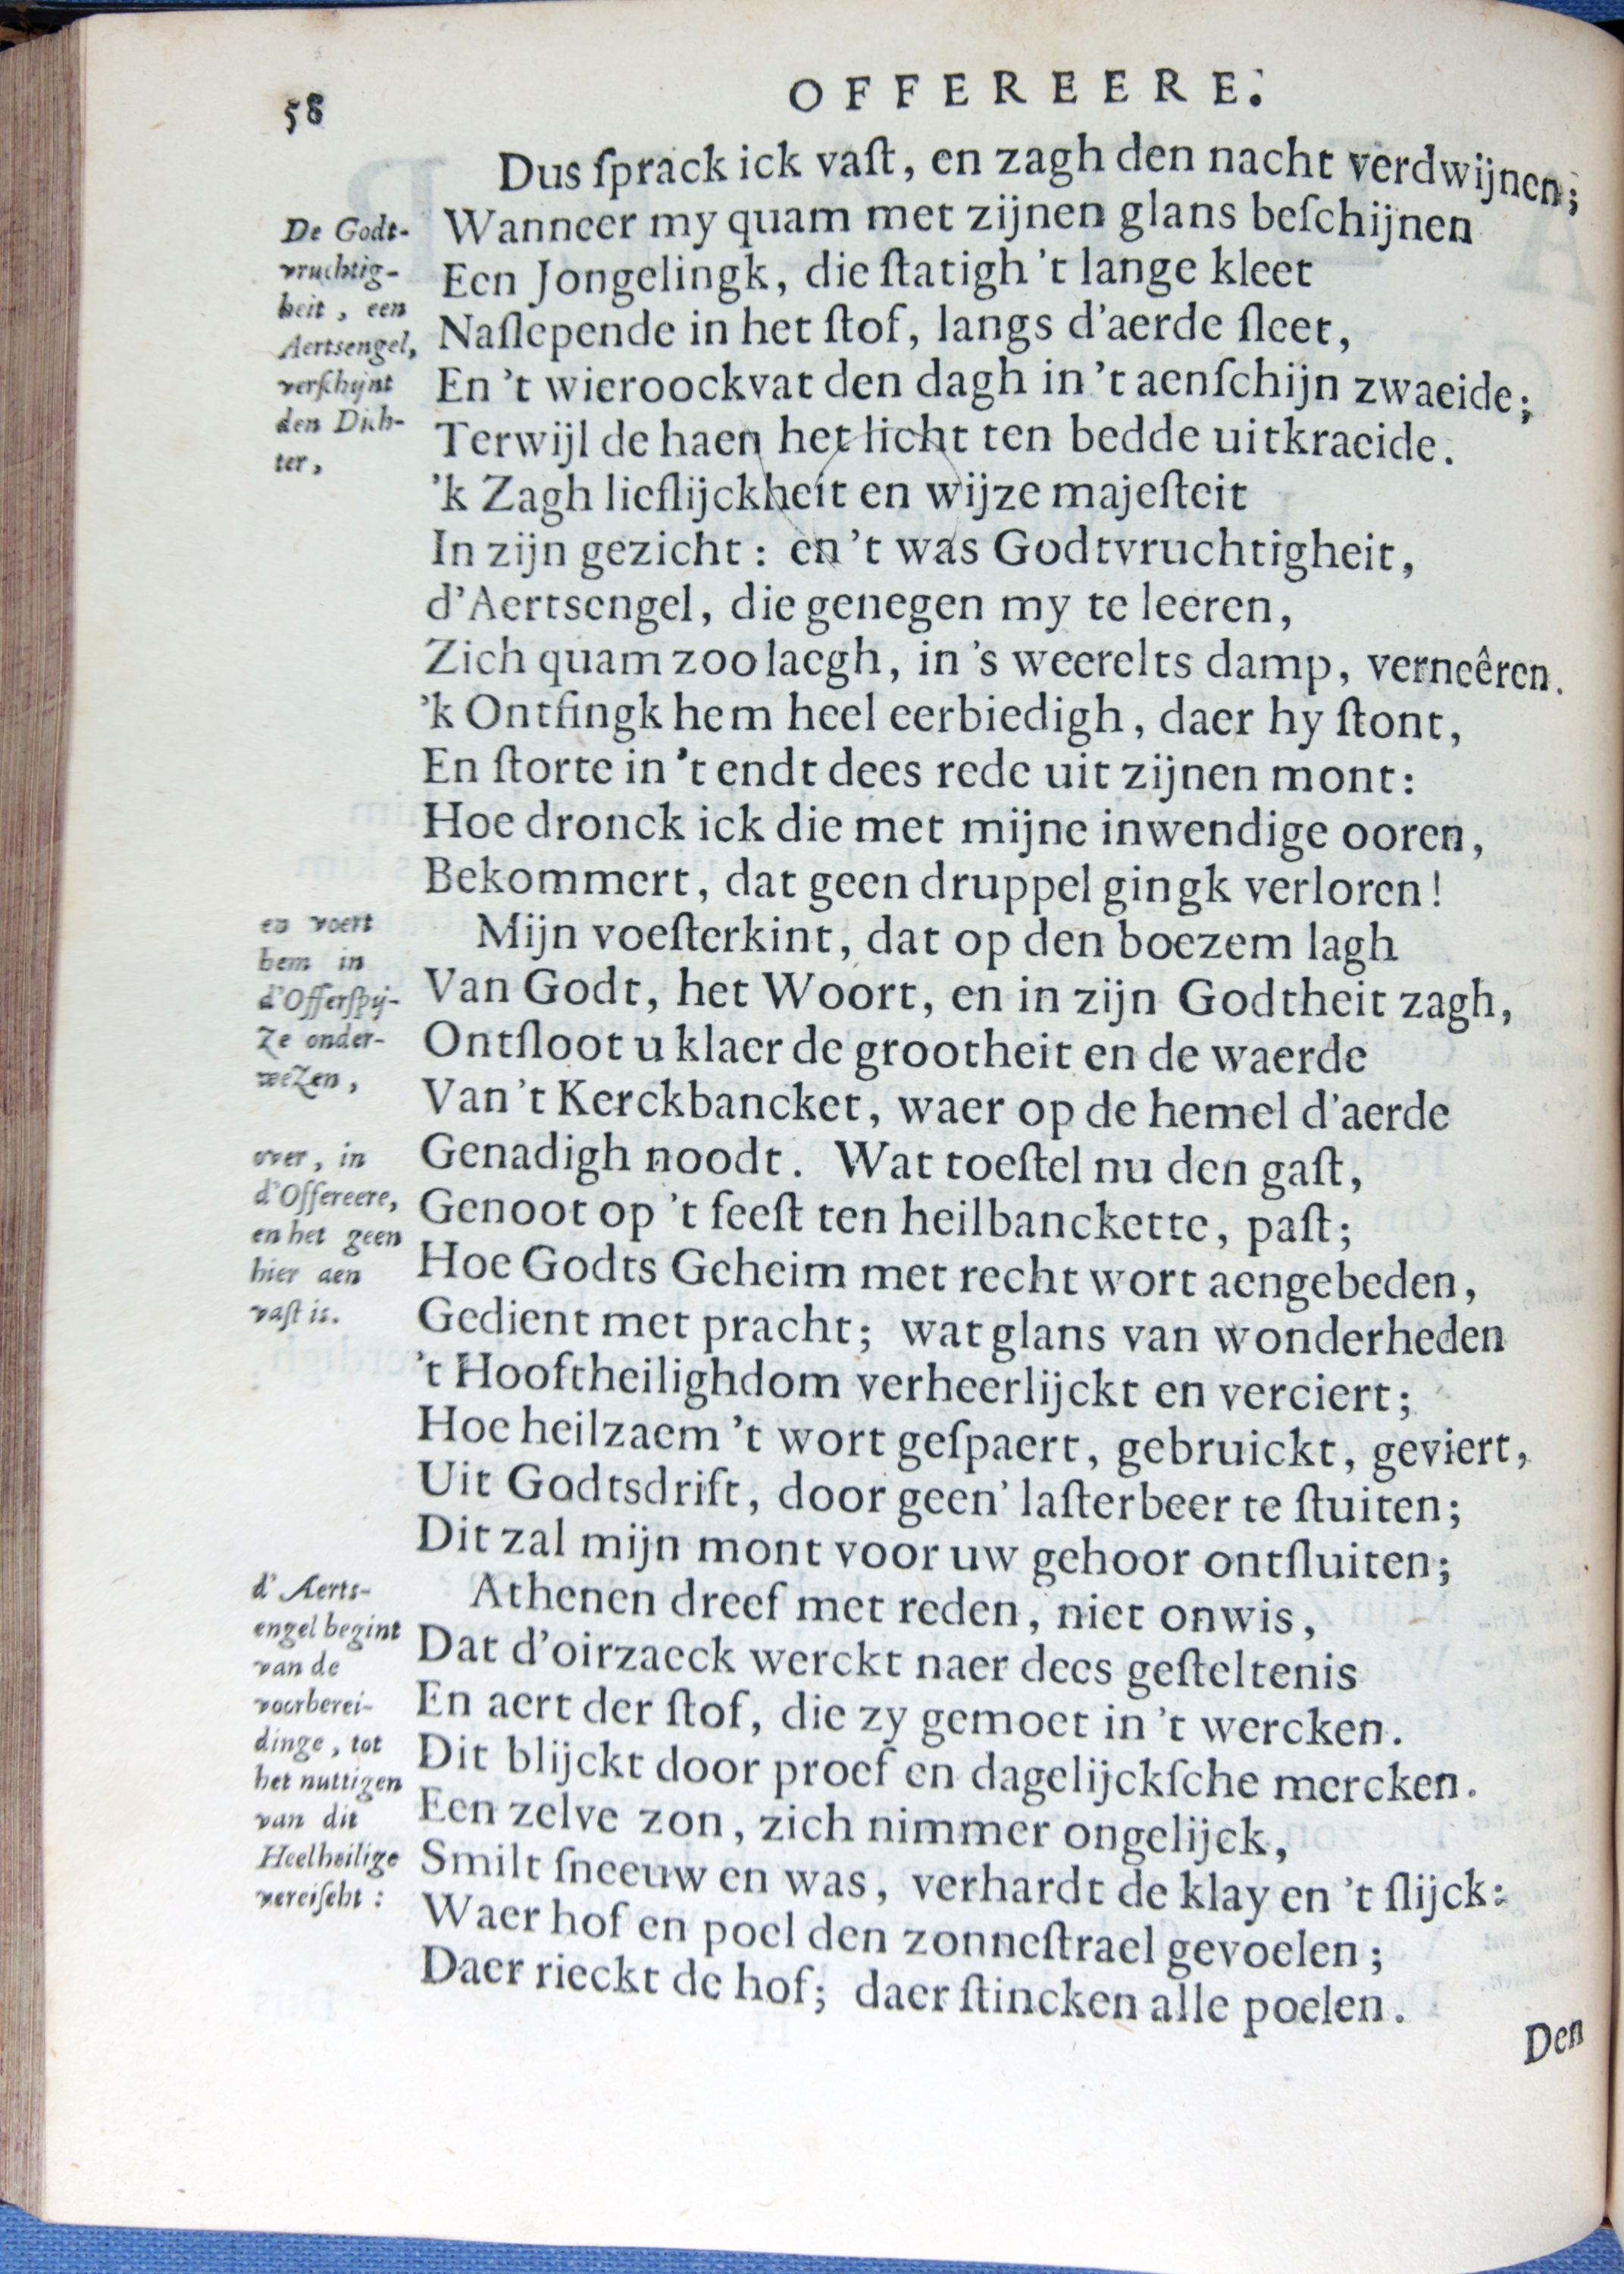 58
OFFEREERE.
Dus ſprack ick vaſt, en zagh den nacht verdwijnen;
Wanneer my quam met zijnen glans beſchijnen
Een Jongelingk, die ſtatigh 't lange kleet
Naſlepende in het ſtof, langs d'aerde ſleet,
En 't wieroockvat den dagh in 't aenſchijn zwaeide;
Terwijl de haen het licht ten bedde uitkraeide.
'k Zagh lieflijckheit en wijze majeſteit
In zijn gezicht: en 't was Godtvruchtigheit,
d'Aertsengel, die genegen my te leeren,
Zich quam zoo laegh, in 's weerelts damp, verneêren.
'k Ontfingk hem heel eerbiedigh, daer hy ſtont,
En ſtorte in 't endt dees rede uit zijnen mont:
Hoe dronck ick die met mijne inwendige ooren,
Bekommert, dat geen druppel gingk verloren!
Mijn voeſterkint, dat op den boezem lagh
Van Godt, het Woort, en in zijn Godtheit zagh,
Ontſloot u klaer de grootheit en de waerde
Van 't Kerckbancket, waer op de hemel d'aerde
Genadigh noodt. Wat toeſtel nu den gaſt,
Genoot op 't feeſt ten heilbanckette, paſt;
Hoe Godts Geheim met recht wort aengebeden,
Gedient met pracht; wat glans van wonderheden
't Hooftheilighdom verheerlijckt en verciert;
Hoe heilzaem 't wort geſpaert, gebruickt, geviert,
Uit Godtsdrift, door geen' laſterbeer te ſtuiten;
Dit zal mijn mont voor uw gehoor ontſluiten;
Athenen dreef met reden, niet onwis,
Dat d'oirzaeck werckt naer dees geſteltenis
En aert der ſtof, die zy gemoet in 't wercken.
Dit blijckt door proef en dagelijckſche mercken.
Een zelve zon, zich nimmer ongelijck,
Smilt ſneeuw en was, verhardt de klay en 't ſlijck:
Waer hof en poel den zonneſtrael gevoelen;
Daer rieckt de hof; daer ſtincken alle poelen.
Den
De Godt-
vruchtig-
heit, een
Aertsengel,
verſchijnt
den Dich-
ter,
en voert
hem in
d'Offerſpij-
ze onder-
wezen,
over, in
d'Offereere,
en het geen
hier aen
vaſt is.
d'Aerts-
engel begint
van de
voorberei-
dinge, tot
het nuttigen
van dit
Heelheilige
vereiſcht: